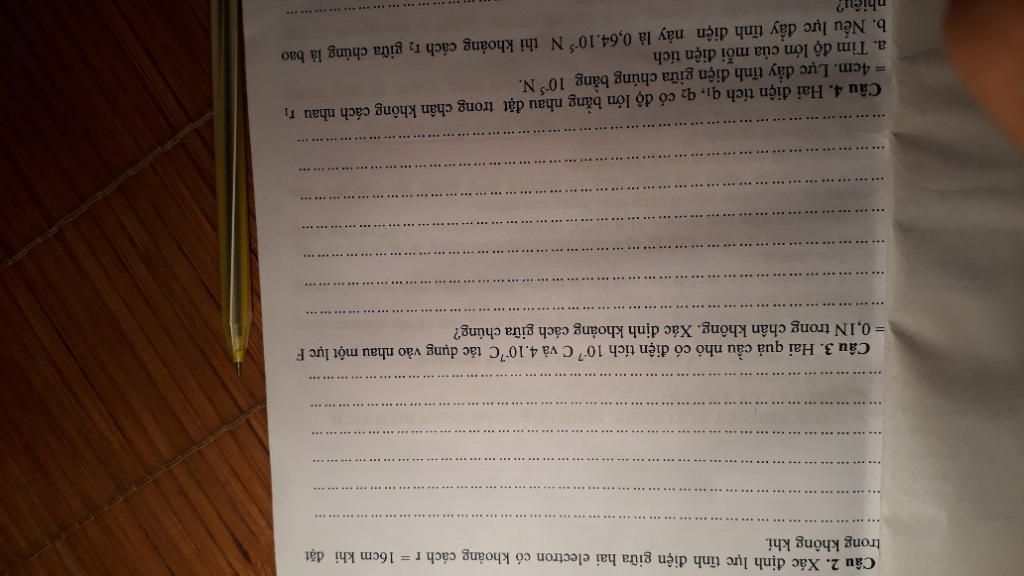 Câu 2. Xác định lực tĩnh điện giữa hai electron có khoảng cách r = 16cm khi đặt
trong không khí.
Câu 3. Hai quả cầu nhỏ có điện tích 10⁻⁷ C và 4.10⁻⁷C tác dụng vào nhau một lực F
= 0,1N trong chân không. Xác định khoảng cách giữa chúng?
Câu 4. Hai điện tích q₁, q₂ có độ lớn bằng nhau đặt trong chân không cách nhau r₁
= 4cm. Lực đẩy tĩnh điện giữa chúng bằng 10⁻⁵ N.
a. Tìm độ lớn của mỗi điện tích
b. Nếu lực đẩy tĩnh điện này là 0,64.10⁻⁵ N thì khoảng cách r₂ giữa chúng là bao
nhiêu?